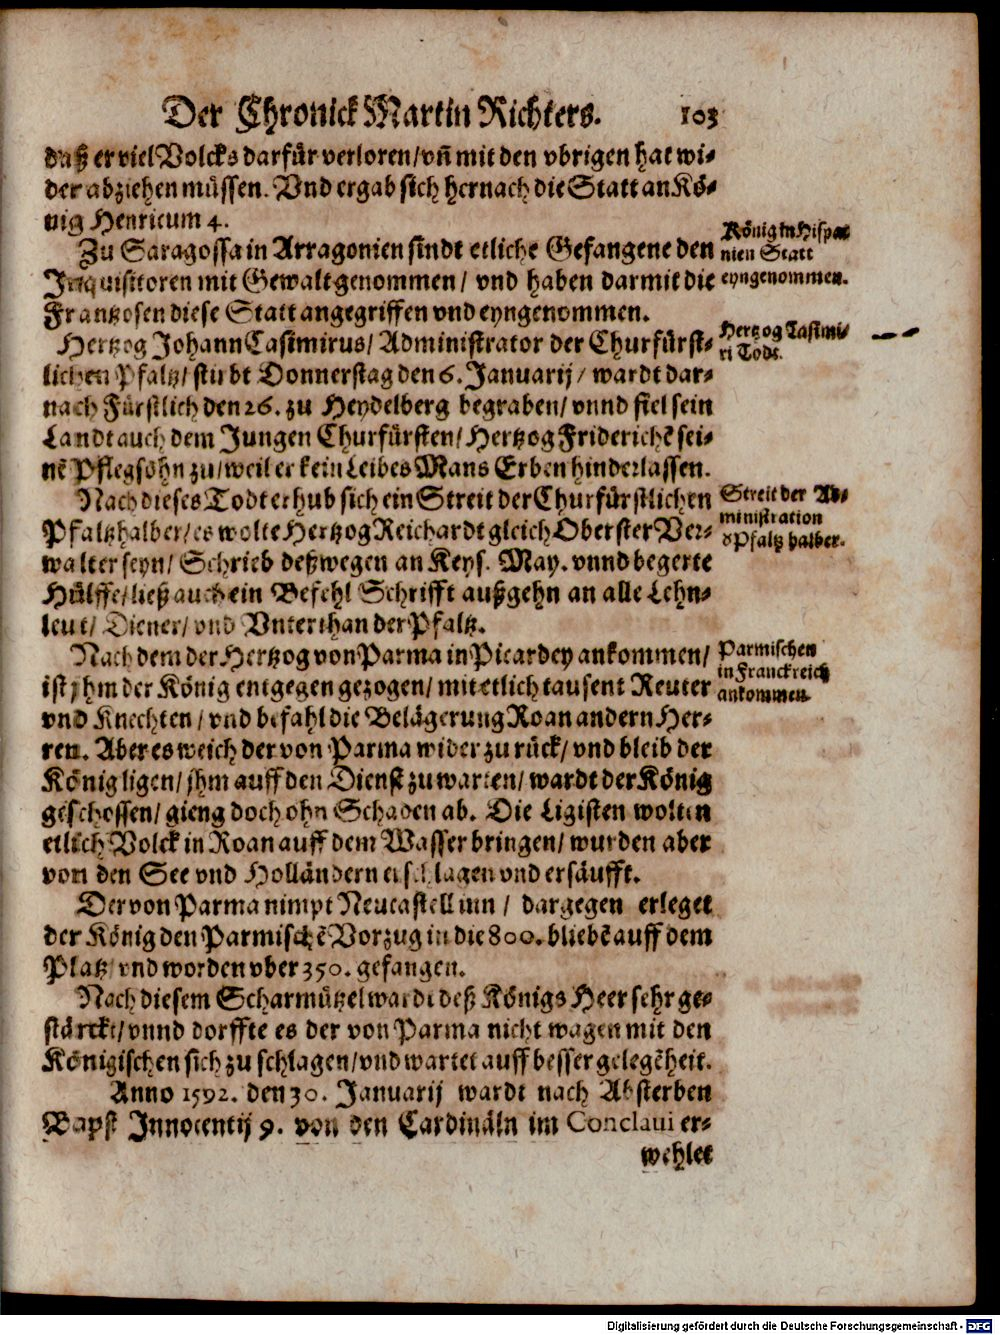 Der Chronick Martin Richters. 103
daß er viel Volcks darfür verloren/ vñ mit den vbrigen hat wi-
der abziehen müssen. Vnd ergab sich hernach die Statt an Kö-
nig Henricum 4.
Zu Saragossa in Arragonien sindt etliche Gefangene den
Inquisitoren mit Gewalt genommen/ vnd haben darmit die
Frantzosen diese Statt angegriffen vnd eyngenommen.
König in Hispa-
nien Statt
eyngenommen.
Hertzog Johann Casimirus/ Administrator der Churfürst-
lichen Pfaltz/ stirbt Donnerstag den 6. Januarij/ wardt dar-
nach Fürstlich den 26. zu Heydelberg begraben/ vnnd fiel sein
Landt auch dem Jungen Churfürsten/ Hertzog Friderichẽ sei-
nẽ Pflegsohn zu/ weil er kein Leibes Mans Erben hinderlassen.
Hertzog Casimi-
ri Todt.
Nach dieses Todt erhub sich ein Streit der Churfürstlichen
Pfaltz halber/ es wolte Hertzog Reichardt gleich Oberster Ver-
walter seyn/ Schrieb deßwegen an Keys. May. vnnd begerte
Hülffe/ ließ auch ein Befehl Schrifft außgehn an alle Lehn-
leut/ Diener/ vnd Vnterthan der Pfaltz.
Streit der Ad-
ministration
d' Pfaltz halber.
Nach dem der Hertzog von Parma in Picardey ankommen/
ist jhm der König entgegen gezogen/ mit etlich tausent Reuter
vnd Knechten/ vnd befahl die Belägerung Roan andern Her-
ren. Aber es weich der von Parma wider zu rück/ vnd bleib der
König ligen/ jhm auff den Dienst zu warten/ wardt der König
geschossen/ gieng doch ohn Schaden ab. Die Ligisten wolten
etlich Volck in Roan auff dem Wasser bringen/ wurden aber
von den See vnd Holländern erschlagen vnd ersäufft.
Parmischen
in Franckreich
ankommen.
Der von Parma nimpt Neucastell inn/ dargegen erleget
der König den Parmischẽ Vorzug in die 800. bliebẽ auff dem
Platz vnd worden vber 350. gefangen.
Nach diesem Scharmützel wardt deß Königs Heer sehr ge-
stärckt/ vnnd dorffte es der von Parma nicht wagen mit den
Königischen sich zu schlagen/ vnd wartet auff besser gelegẽheit.
Anno 1592. den 30. Januarij wardt nach Absterben
Bapst Innocentij 9. von den Cardinäln im Conclaui er-
wehlet
Digitalisierung gefördert durch die Deutsche Forschungsgemeinschaft - DFG